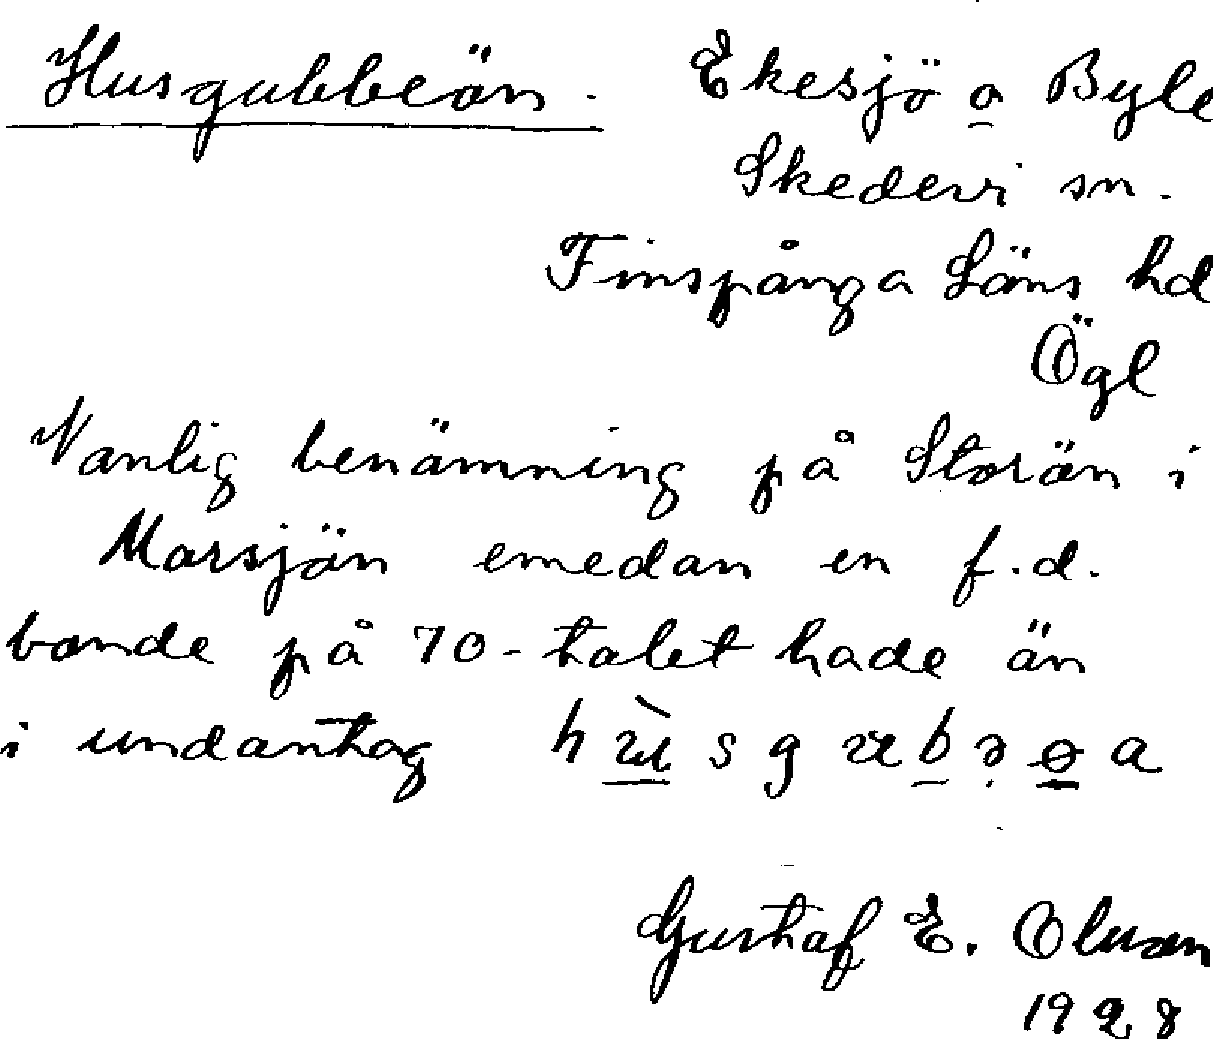 Husgubbeön. Ekesjö o Byle
Skedevi sn.
Finspånga Läns hd
Ögl
Vanlig benämning på Storön i
Morsjön emedan en f.d.
bonde på 70-talet hade ön
i undantag
Gustaf E. Olsson
1928